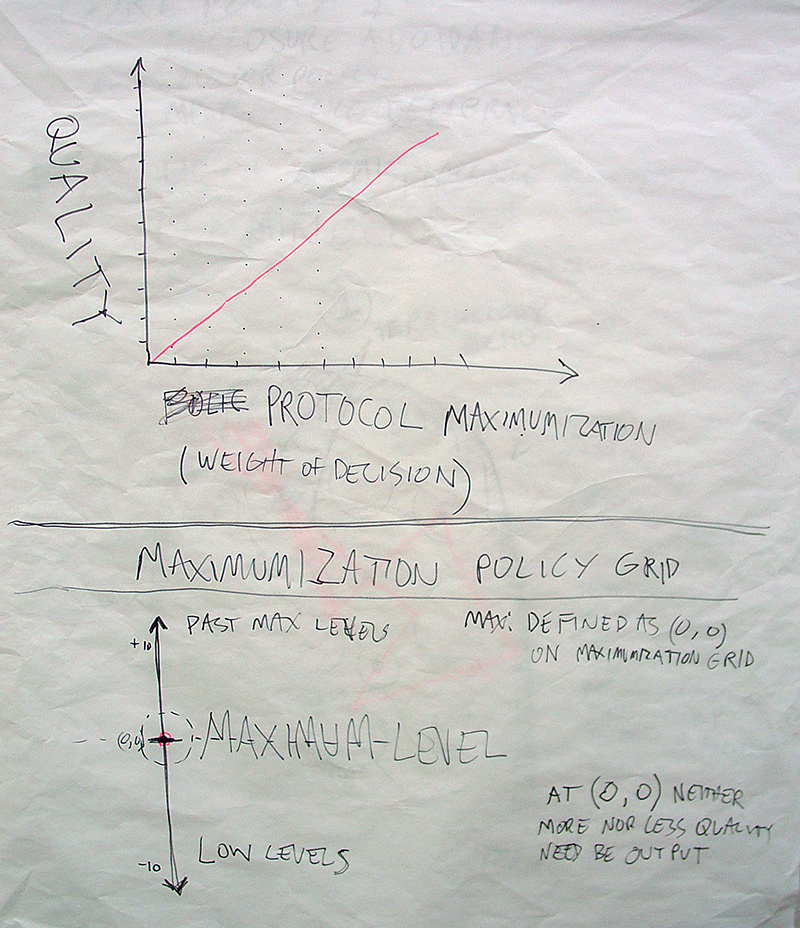 QUALITY
PROTOCOL MAXIMUMIZATION
(WEIGHT OF DECISION)
MAXIMUMIZATION POLICY GRID
PAST MAX LEVELS
MAX: DEFINED AS (0,0)
ON MAXIMUMIZATION GRID
+10
(0,0)
MAXIMUM-LEVEL
AT (0,0) NEITHER
MORE NOR LESS QUALITY
NEED BE OUTPUT
LOW LEVELS
-10